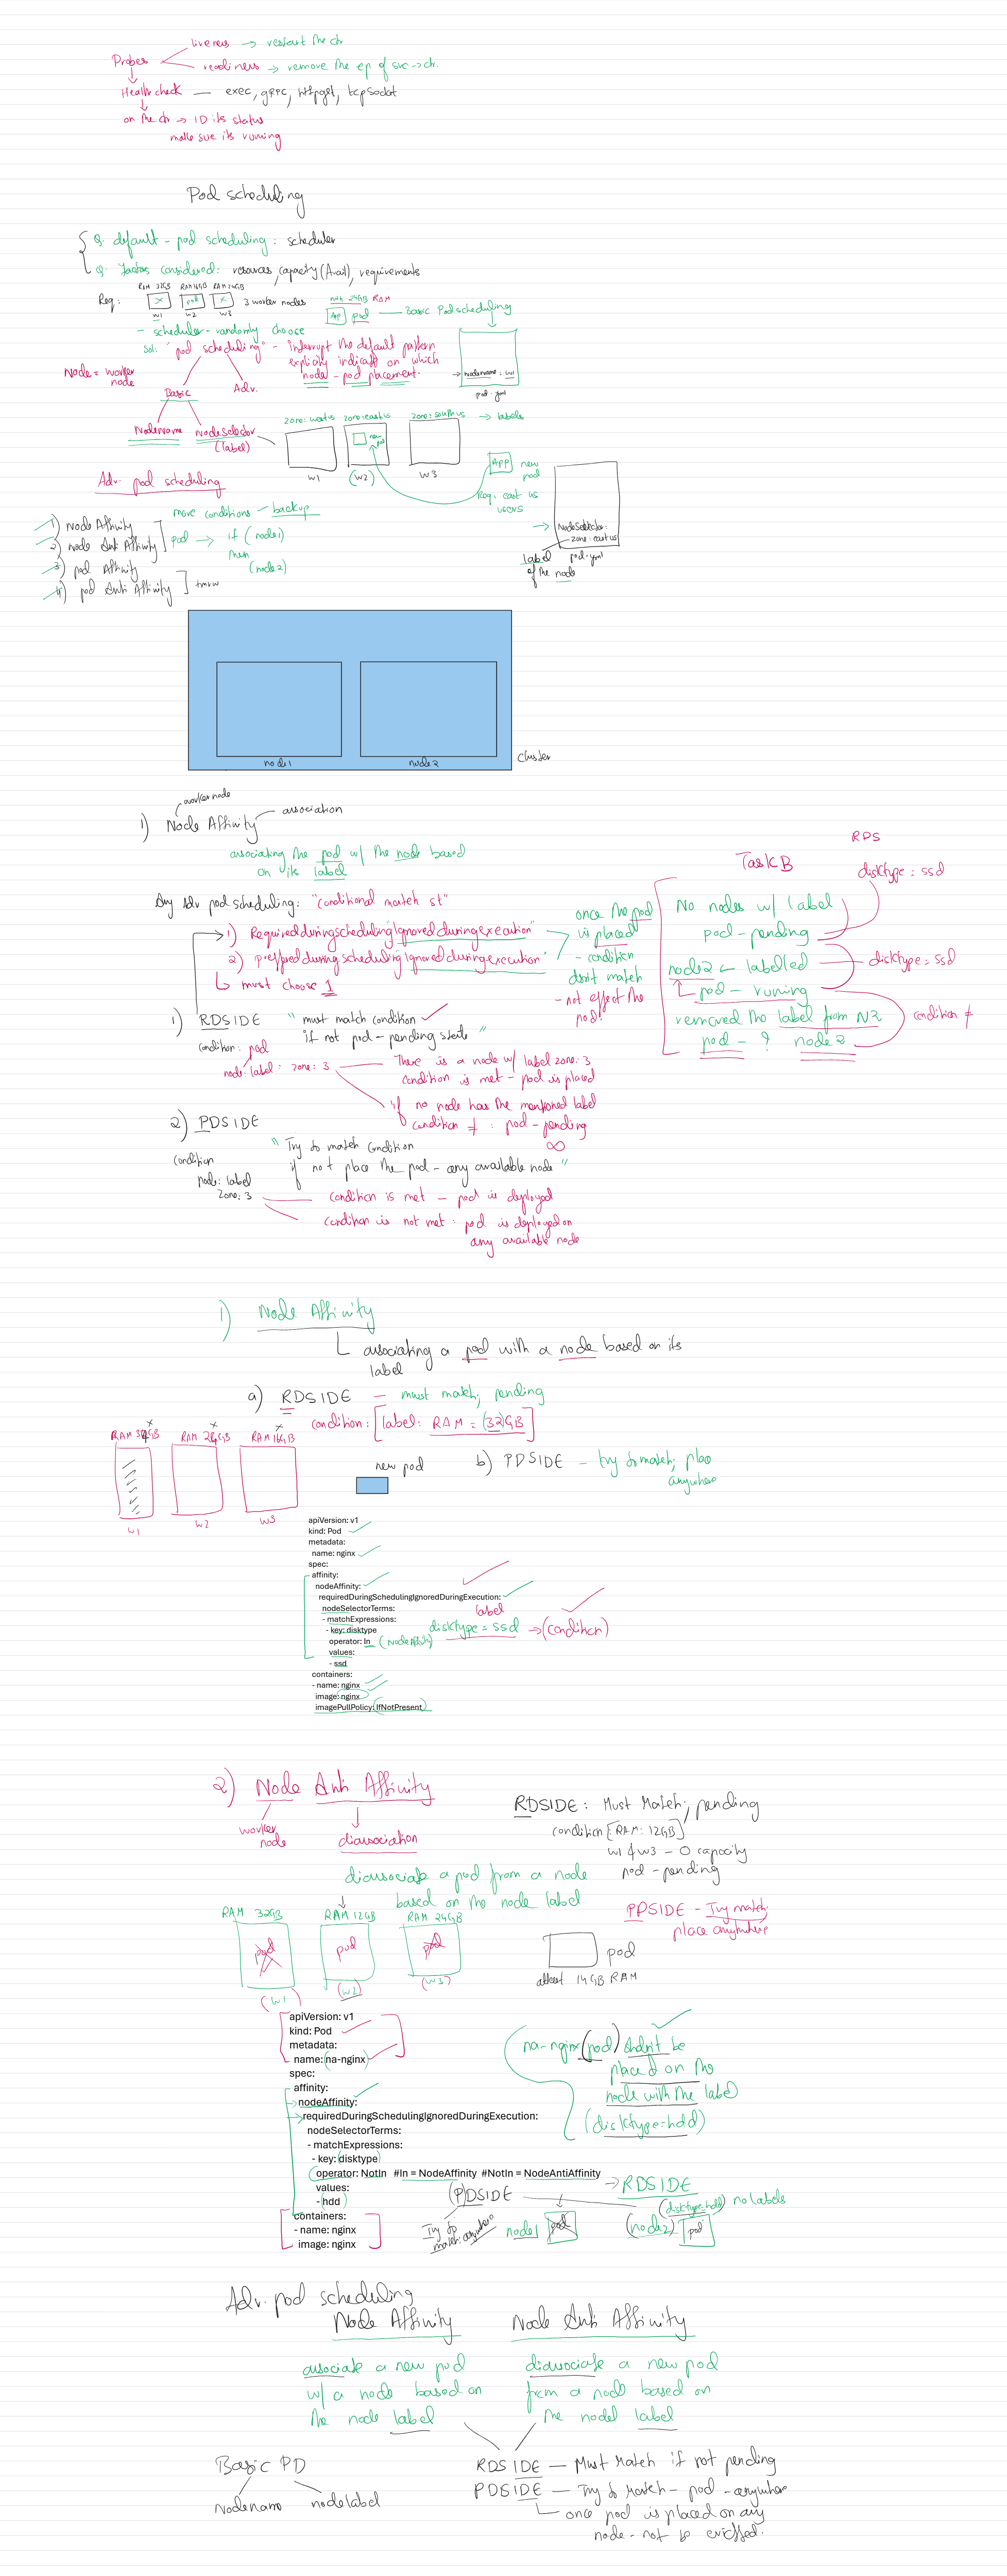 liveness → restart the ctr
Probes
readiness → remove the ep of svc → ctr.
Healthcheck — exec, gRPC, httpget, tcpSocket
on the ctr → ID its status
make sure its running
Pod scheduling
Q. default - pod scheduling : scheduler
Q. factors considered: resources, capacity (Avail), requirements
RAM 32GB RAM 16GB RAM 24GB
Req: x pod x 3 worker nodes
w1 w2 w3
with 24GB RAM
App pod — Basic Podscheduling
- scheduler - randomly choose
Sol: "pod scheduling" - interrupt the default pattern
explicitly indicate on which
node - pod placement.
→ nodename: w1
pod.yml
Node = worker
node
Basic Adv.
Nodename nodeselector
(label)
zone: westus zone: eastus zone: southus → labels
new
pod
w1 (w2) w3
App new
pod
Req: east us
users
→ NodeSelector:
zone: eastus
label pod.yml
of the node
Adv. pod scheduling
more conditions - backup
1) node Affinity
2) node Anti Affinity
3) pod Affinity
4) pod Anti Affinity
pod → if (node1)
then
(node2)
tmrw
node1 node2
Cluster
worker node
1) Node Affinity — association
associating the pod w/ the node based
on its label
Any Adv pod scheduling: "conditional match st"
1) Requiredduringscheduling"Ignoredduringexecution"
2) preffredduringscheduling"Ignoredduringexecution"
↳ must choose 1
once the pod
is placed
- condition
dosn't match
- not effect the
pod!
1) RDSIDE "must match condition
if not pod - pending state"
condition: pod
node: label: zone: 3
There is a node w/ label zone: 3
condition is met - pod is placed
if no node has the mentioned label
condition ≠ : pod - pending
∞
2) PDSIDE
"Try to match condition
if not place the pod - any available node"
condition
node: label
zone: 3
condition is met - pod is deployed
condition is not met : pod is deployed on
any available node
RDS
Task B
disktype: ssd
No nodes w/ label
pod - pending
node2 ← labelled
disktype = ssd
pod - running
removed the label from N2
condition ≠
pod - ? node2
1) Node Affinity
associating a pod with a node based on its
label
a) RDSIDE - must match; pending
condition: [label: RAM = (32)GB]
RAM 24GB RAM 16GB
w1 w2 w3
new pod
b) PDSIDE - try to match; place
anywhere
apiVersion: v1
kind: Pod
metadata:
name: nginx
spec:
affinity:
nodeAffinity:
requiredDuringSchedulingIgnoredDuringExecution:
nodeSelectorTerms:
- matchExpressions:
- key: disktype
operator: In (NodeAffinity)
values:
- ssd
label
disktype = ssd → (condition)
containers:
- name: nginx
image: nginx
imagePullPolicy: IfNotPresent
2) Node Anti Affinity
worker
node
disassociation
disassociate a pod from a node
based on the node label
RDSIDE : Must Match; pending
condition [RAM: 12GB]
w1 & w3 - 0 capacity
pod - pending
PDSIDE - Try match
place anywhere
RAM 32GB RAM 12GB RAM 24GB
pod pod pod
(w1) (w2) (w3)
pod
atleast 14GB RAM
apiVersion: v1
kind: Pod
metadata:
name: na-nginx
spec:
affinity:
nodeAffinity:
requiredDuringSchedulingIgnoredDuringExecution:
nodeSelectorTerms:
- matchExpressions:
- key: disktype
operator: NotIn #In = NodeAffinity #NotIn = NodeAntiAffinity → RDSIDE
values:
- hdd
containers:
- name: nginx
image: nginx
na-nginx (pod) shdn't be
placed on the
node with the label
(disktype=hdd)
(P)DSIDE
Try to
match: anywhere
node1 pod
(disktype:hdd) no labels
(node2) pod
Adv. pod scheduling
Node Affinity Node Anti Affinity
associate a new pod
w/ a node based on
the node label
disassociate a new pod
from a node based on
the nodel label
Basic PD
Nodename nodelabel
RDSIDE — Must Match if not pending
PDSIDE — Try to Match - pod - anywhere
once pod is placed on any
node - not be evicted.